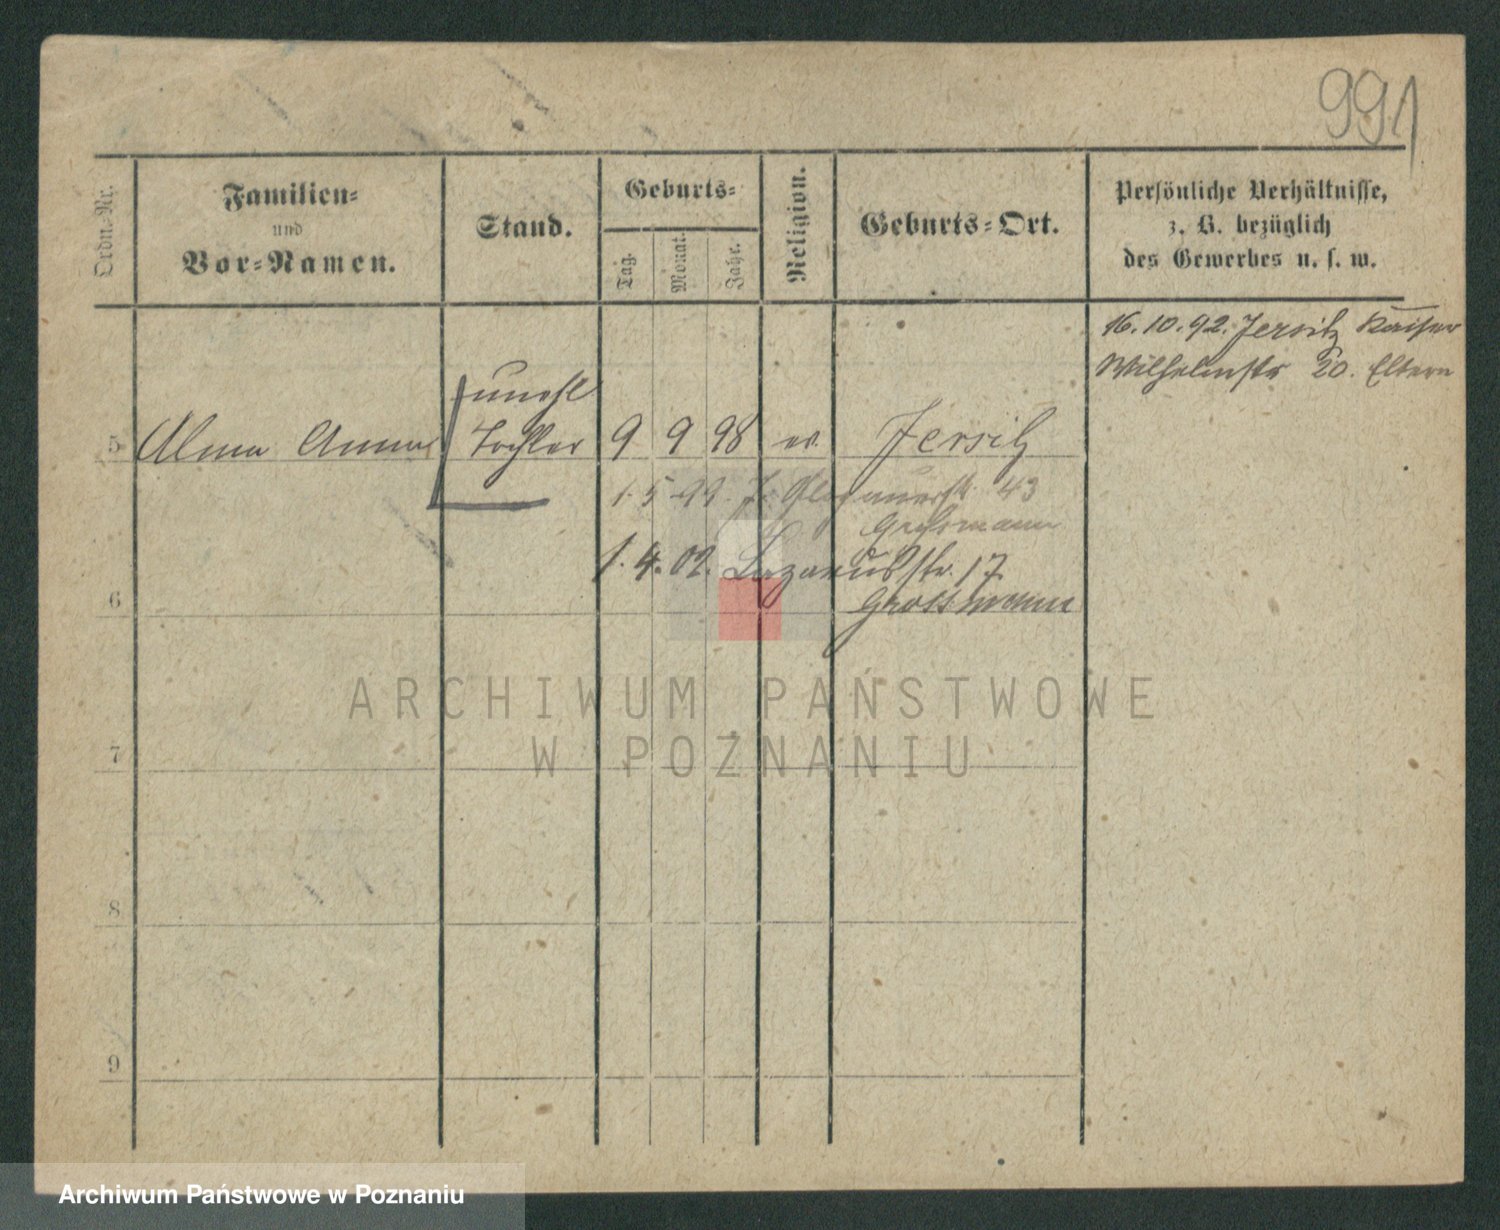 991
Ordn.-Nr.
Familien-
und
Vor-Namen.
Stand.
Geburts-
Tag.
Monat.
Jahr.
Religion.
Geburts-Ort.
Persönliche Verhältnisse,
z. B. bezüglich
des Gewerbes u. s. w.
16.10.92. Jersitz Kaiser
Wilhelmstr 20. Eltern
unehl
5 Alma Anna Tochter 9 9 98 ev. Jersitz
1. 5. 99. J. 43
1. 4. 02. Lazarusstr. 17
6 Grossmann
7
8
9
ARCHIWUM PAŃSTWOWE
W POZNANIU
Archiwum Państwowe w Poznaniu